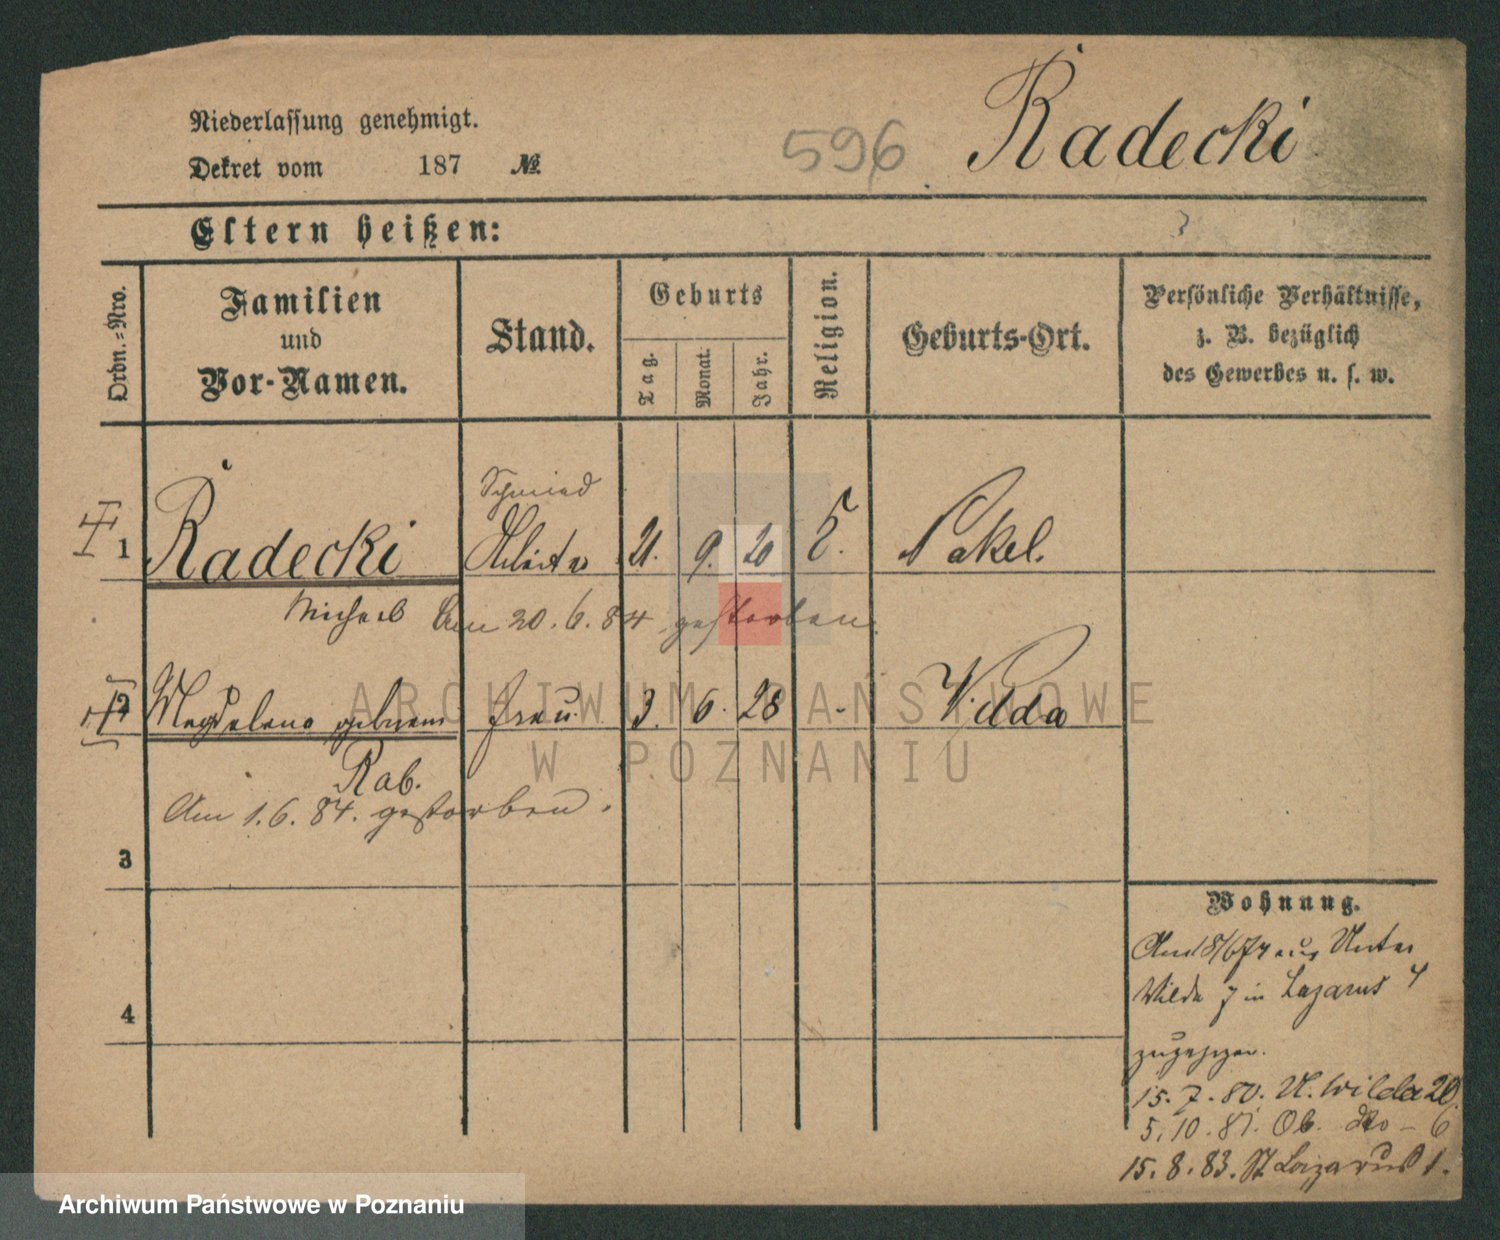 Niederlassung genehmigt.
Dekret vom 187 №
596 Radecki
Eltern heißen:
Ordn.-Nro.
Familien
und
Vor-Namen.
Stand.
Geburts
Tag.
Monat.
Jahr.
Religion.
Geburts-Ort.
Persönliche Verhältnisse,
z. B. bezüglich
des Gewerbes u. s. w.
Schmied
1 Radecki 21. 9. 20 Nakel.
Michael Am 20.6.84 gestorben.
2 Magdalena geborene Frau 3. 6. 28 - Wilda
Rab.
Am 1.6.84. gestorben.
3
4
Wohnung.
Am 18/6 74 aus Unter
Wilda 7 in Lazarus 4
zugezogen.
15.7.80. U. Wilda 20.
5.10.81. Ob. dto - 6
15.8.83. St Lazarus 1.
ARCHIWUM PAŃSTWOWE
W POZNANIU
Archiwum Państwowe w Poznaniu